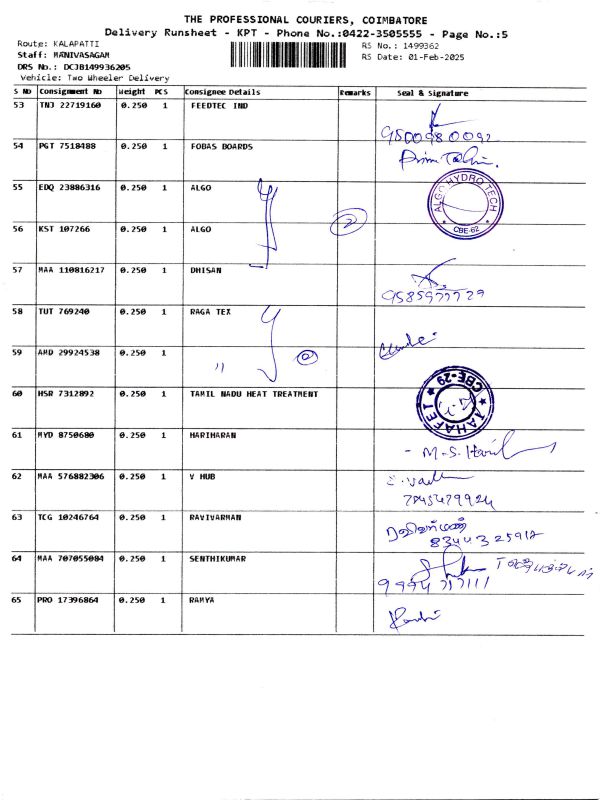 THE PROFESSIONAL COURIERS, COIMBATORE
Delivery Runsheet - KPT - Phone No.:0422-3505555 - Page No.:5
Route: KALAPATTI
RS No.: 1499362
Staff: MANIVASAGAM
RS Date: 01-Feb-2025
DRS No.: DCJB149936205
Vehicle: Two Wheeler Delivery
S No Consignment No Weight PCS Consignee Details Remarks Seal & Signature
53 TNJ 22719160 0.250 1 FEEDTEC IND
9500980092
54 PGT 7518488 0.250 1 FOBAS BOARDS
55 EDQ 23886316 0.250 1 ALGO
ALGO HYDRO TECH
CBE-62
2
56 KST 107266 0.250 1 ALGO
57 MAA 110816217 0.250 1 DHISAN
9585977729
58 TUT 769240 0.250 1 RAGA TEX
59 AMD 29924538 0.250 1 "
60 HSR 7312892 0.250 1 TAMIL NADU HEAT TREATMENT
CBE-29
61 MYD 8750680 0.250 1 HARIHARAN
- M.S. Hari
62 MAA 576882306 0.250 1 V HUB
7845479924
63 TCG 10246764 0.250 1 RAVIVARMAN
ரவிவர்மன்
8344325912
64 MAA 707055084 0.250 1 SENTHIKUMAR
9994757111
65 PRO 17396864 0.250 1 RAMYA